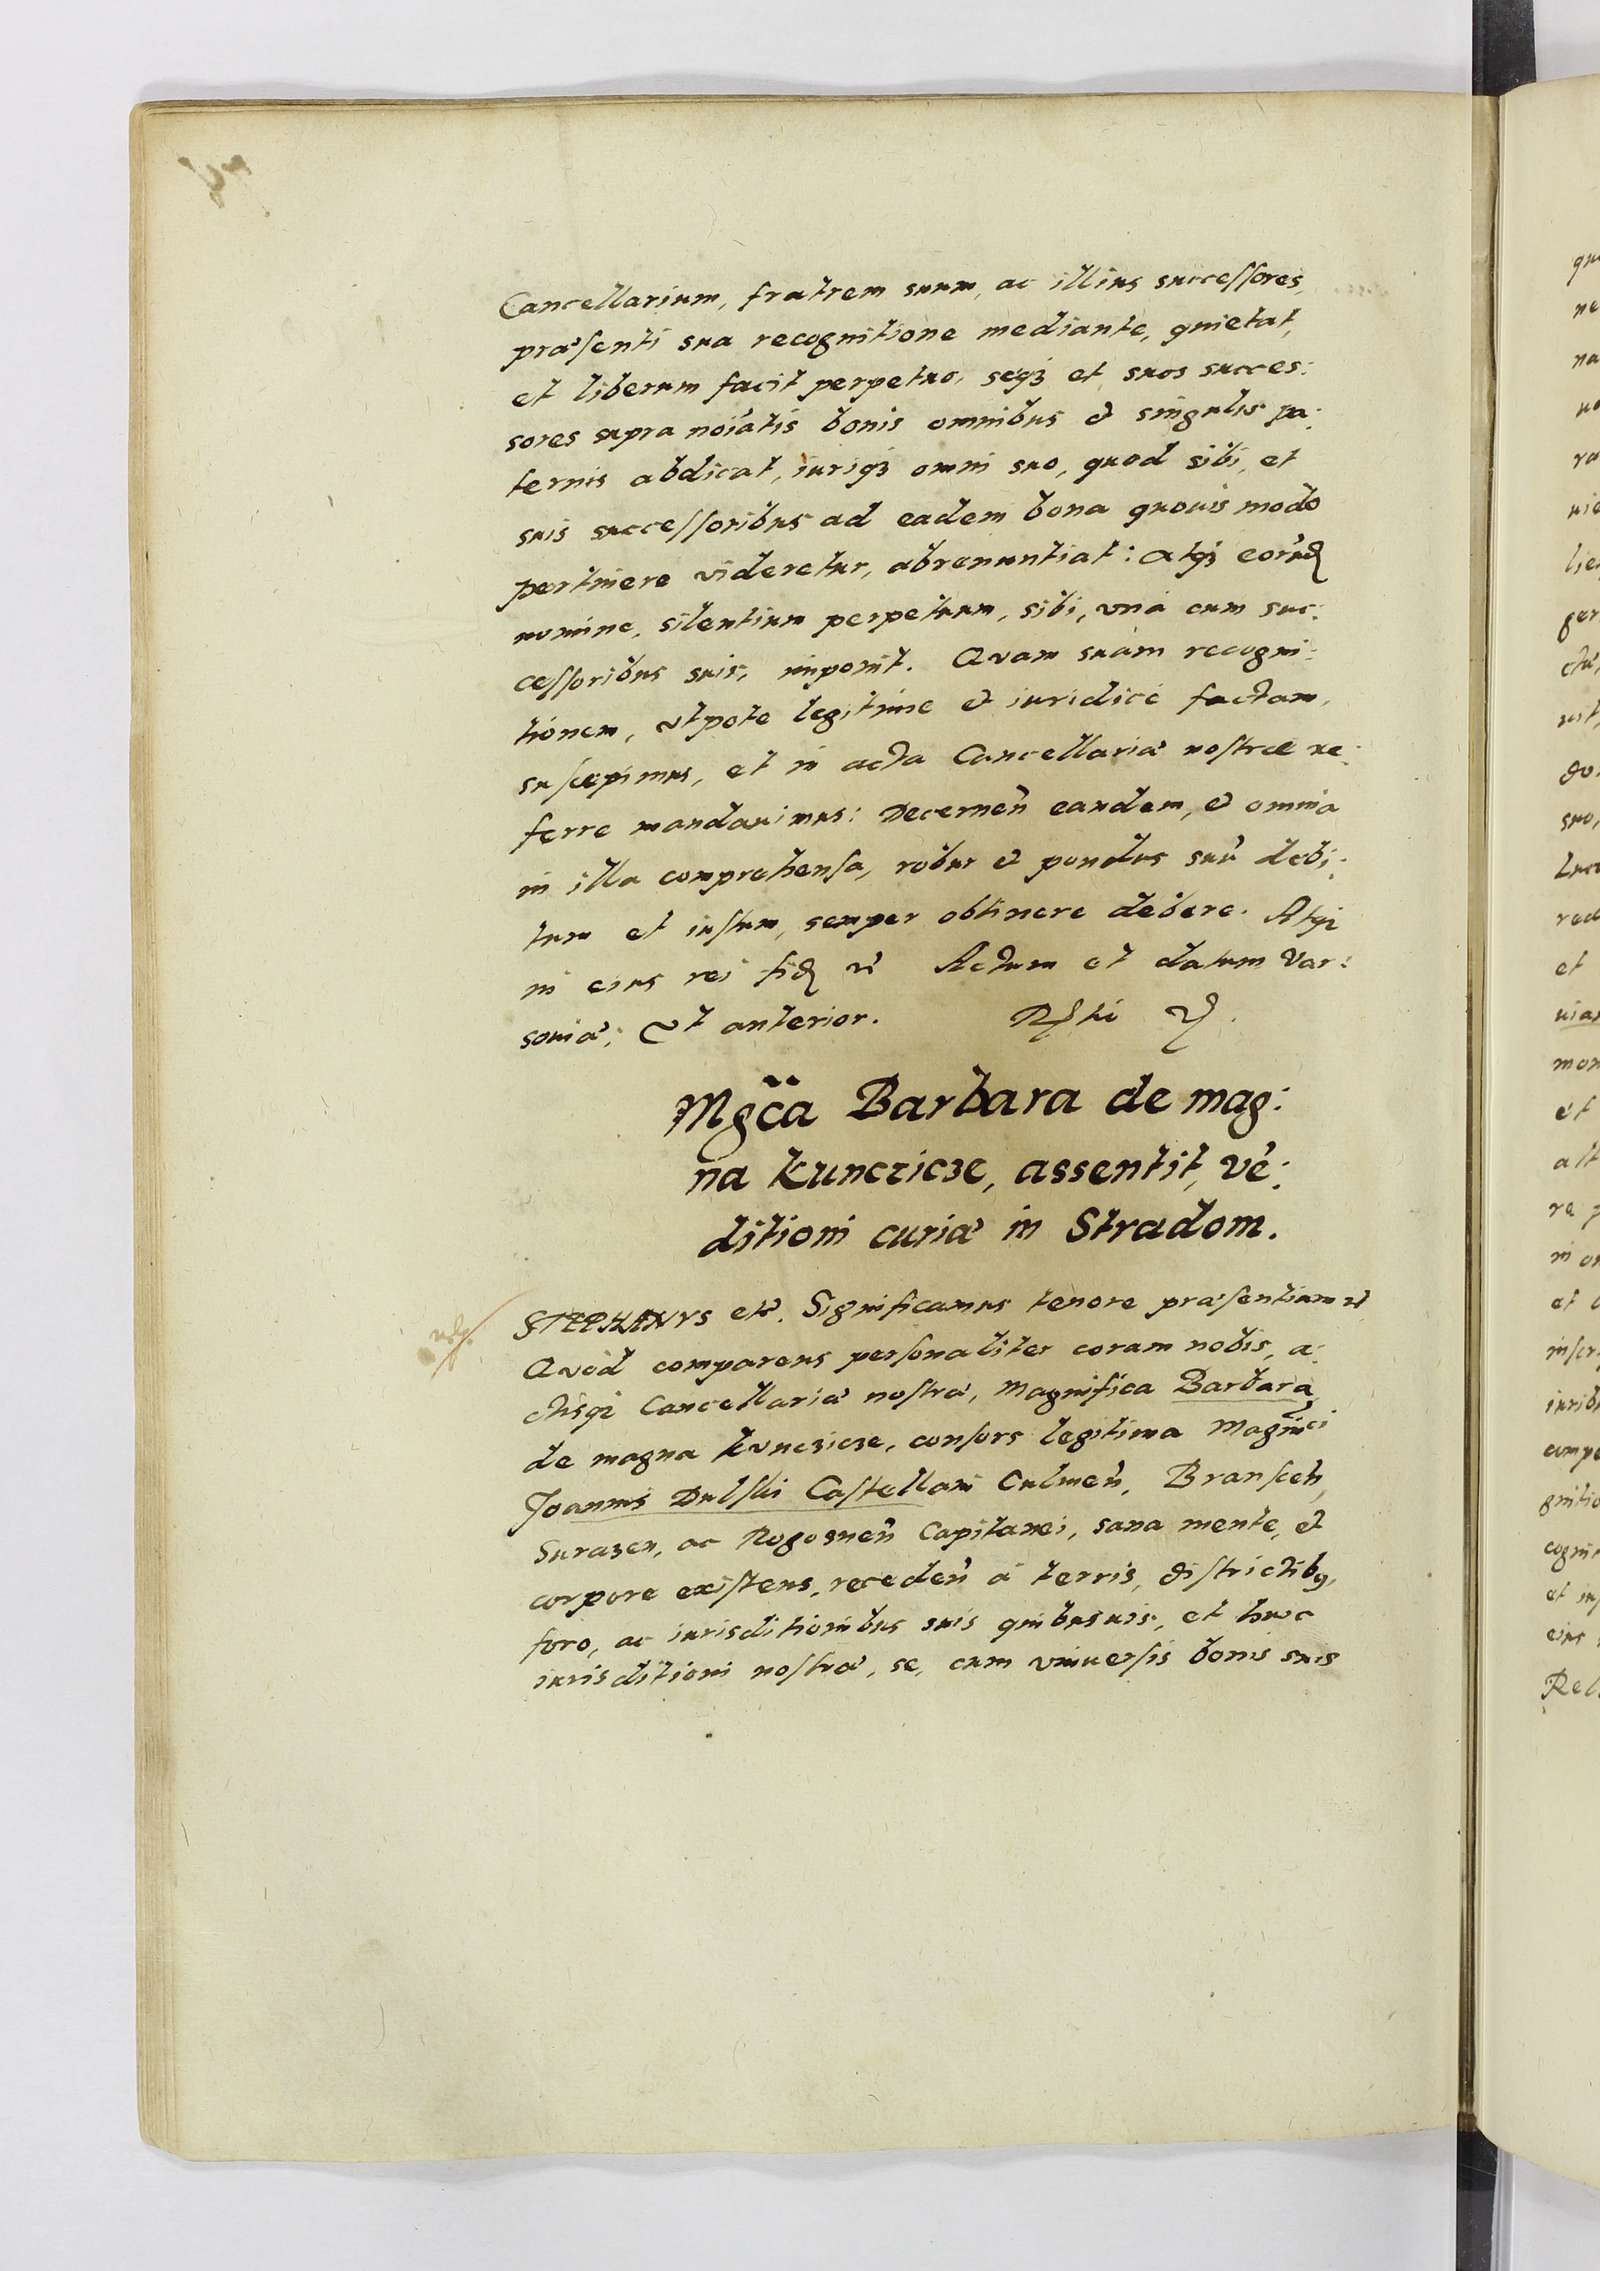 Cancellarium, fratrem suum, ac illius successores,
præsenti sua recognitione mediante, quietat,
et liberum facit perpetuo, seqꝫ et suos succes:
sores supra noiatis bonis omnibus et singulis pa:
ternis abdicat, iuriqꝫ omni suo, quod sibi, et
suis successoribus ad eadem bona quouis modo
pertinere videretur, abrenuntiat: Atqꝫ eorund
nomine, silentium perpetuum, sibi, vnà cum suc:
cessoribus suis, imponit. Quam suàm recogni:
tionem, vtpote legitime et iuridicè factam,
suscepimus, et in acta Cancellariæ nostræ re:
ferre mandauimus: Decernen̄ eandem, et omnia
in illa comprehensa, robur et pondus suū debi:
tum et iustum, semper obtinere debere. Atqꝫ
in eius rei fid Actum et datum Var:
souiæ, Vt anterior.
Mgc̄a Barbara de mag:
na Kunczicze, assentit, vē:
ditioni curiæ in Stradom.
STEPHANVS etc. Significamus tenore præsentium
Quòd comparens personaliter coram nobis, a:
ctisqꝫ Cancellariæ nostræ, Magnifica Barbara
de magna Kunczicze, consors legitima Magnici
Joannis Dulski Castellani Culmen̄, Branscen̄,
Surazen, ac Rogosnen̄ Capitanei, sana mente, et
corpore existens, receden̄ à terris, districtibꝫ,
foro, ac iurisditionibus suis quibusuis, et huic
iurisditioni nostræ, se, cum vniuersis bonis suis